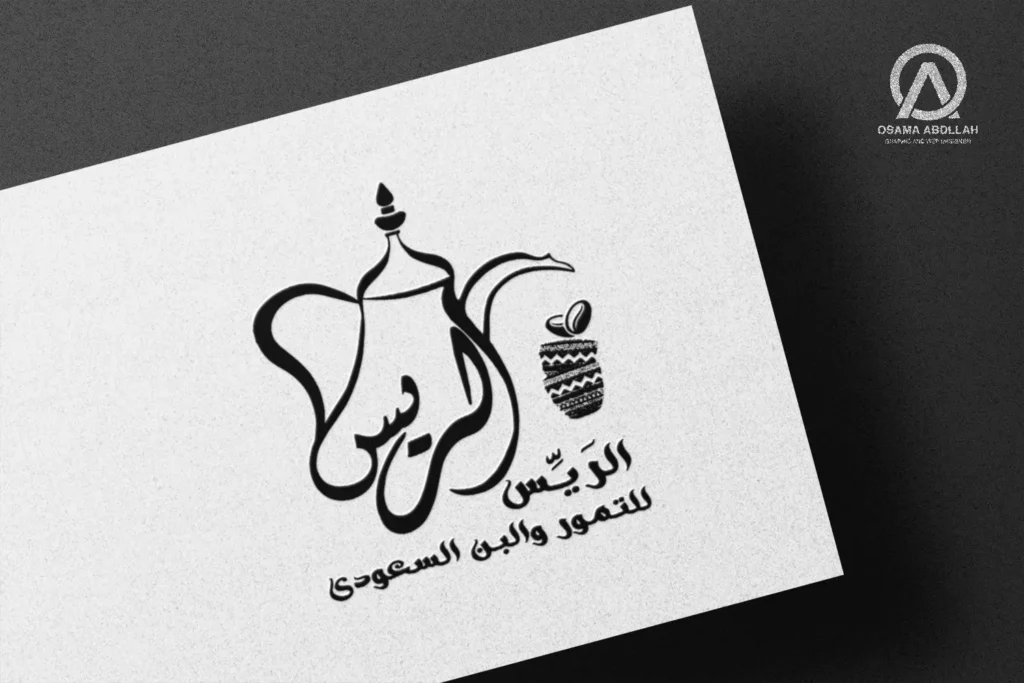 الريس
الرَيِّس
للتمور والبن السعودى
OSAMA ABDLLAH
GRAPHIC AND WEB DESIGNER